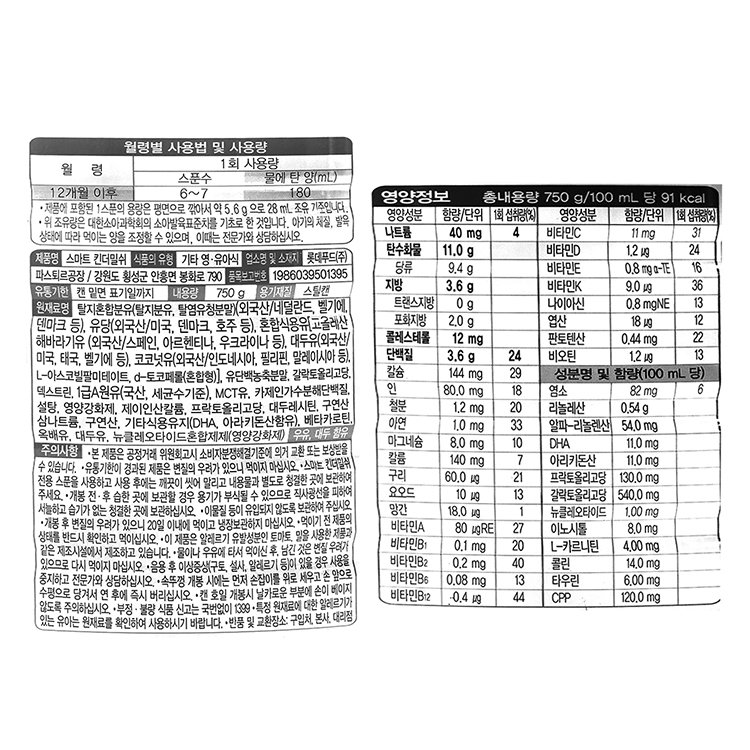 월령별 사용법 및 사용량
월 령 1회 사용량
스푼수 물에 탄 양(mL)
12개월 이후 6~7 180
•제품에 포함된 1스푼의 용량은 평면으로 깎아서 약 5.6 g 으로 28 mL 조유 기준입니다.
•위 조유량은 대한소아과학회의 소아발육표준치를 기초로 한 것입니다. 아기의 체질, 발육
상태에 따라 먹이는 양을 조정할 수 있으며, 이때는 전문가와 상담하십시오.
제품명 스마트 킨더밀쉬 식품의 유형 기타 영·유아식 업소명 및 소재지 롯데푸드(주)
파스퇴르공장 / 강원도 횡성군 안흥면 봉화로 790 품목보고번호 1986039501395
유통기한 캔 밑면 표기일까지 내용량 750 g 용기재질 스틸캔
원재료명 탈지혼합분유(탈지분유, 탈염유청분말)(외국산/네덜란드, 벨기에,
덴마크 등), 유당(외국산/미국, 덴마크, 호주 등), 혼합식용유[고올레산
해바라기유 (외국산/스페인, 아르헨티나, 우크라이나 등), 대두유(외국산/
미국, 태국, 벨기에 등), 코코넛유(외국산/인도네시아, 필리핀, 말레이시아 등),
L-아스코빌팔미테이트, d-토코페롤(혼합형)], 유단백농축분말, 갈락토올리고당,
덱스트린, 1급A원유(국산, 세균수기준), MCT유, 카제인가수분해단백질,
설탕, 영양강화제, 제이인산칼륨, 프락토올리고당, 대두레시틴, 구연산
삼나트륨, 구연산, 기타식용유지(DHA, 아라키돈산함유), 베타카로틴,
옥배유, 대두유, 뉴클레오타이드혼합제제(영양강화제) 우유, 대두 함유
주의사항 •본 제품은 공정거래 위원회고시 소비자분쟁해결기준에 의거 교환 또는 보상받을
수 있습니다. •유통기한이 경과된 제품은 변질의 우려가 있으니 먹이지 마십시오. •스마트 킨더밀쉬
전용 스푼을 사용하고 사용 후에는 깨끗이 씻어 말리고 내용물과 별도로 청결한 곳에 보관하여
주세요. •개봉 전·후 습한 곳에 보관할 경우 용기가 부식될 수 있으므로 직사광선을 피하여
서늘하고 습기가 없는 청결한 곳에 보관하십시오. •이물질 등이 유입되지 않도록 보관하여 주십시오.
•개봉 후 변질의 우려가 있으니 20일 이내에 먹이고 냉장보관하지 마십시오. •먹이기 전 제품의
상태를 반드시 확인하고 먹이십시오. •이 제품은 알레르기 유발성분인 토마토, 밀을 사용한 제품과
같은 제조시설에서 제조하고 있습니다. •물이나 우유에 타서 먹이신 후, 남긴 것은 변질 우려가
있으므로 다시 먹이지 마십시오. •음용 후 이상증상(구토, 설사, 알레르기 등)이 있을 경우 사용을
중지하고 전문가와 상담하십시오. •속뚜껑 개봉 시에는 먼저 손잡이를 위로 세우고 손 앞으로
수평으로 당겨서 연 후에 즉시 버리십시오. •캔 호일 개봉시 날카로운 부분에 손이 베이지
않도록 주의하십시오. •부정·불량 식품 신고는 국번없이 1399 •특정 원재료에 대한 알레르기가
있는 유아는 원재료를 확인하여 사용하시기 바랍니다. •반품 및 교환장소: 구입처, 본사, 대리점
영양정보 총내용량 750 g/100 mL 당 91 kcal
영양성분 함량/단위 1회 섭취량(%) 영양성분 함량/단위 1회 섭취량(%)
나트륨 40 mg 4 비타민C 11 mg 31
탄수화물 11.0 g 비타민D 1.2 μg 24
당류 9.4 g 비타민E 0.8 mg α-TE 16
지방 3.6 g 비타민K 9.0 μg 36
트랜스지방 0 g 나이아신 0.8 mgNE 13
포화지방 2.0 g 엽산 18 μg 12
콜레스테롤 12 mg 판토텐산 0.44 mg 22
단백질 3.6 g 24 비오틴 1.2 μg 13
칼슘 144 mg 29 성분명 및 함량(100 mL 당)
인 80.0 mg 18 염소 82 mg 6
철분 1.2 mg 20 리놀레산 0.54 g
아연 1.0 mg 33 알파-리놀렌산 54.0 mg
마그네슘 8.0 mg 10 DHA 11.0 mg
칼륨 140 mg 7 아라키돈산 11.0 mg
구리 60.0 μg 21 프락토올리고당 130.0 mg
요오드 10 μg 13 갈락토올리고당 540.0 mg
망간 18.0 μg 1 뉴클레오타이드 1.00 mg
비타민A 80 μgRE 27 이노시톨 8.0 mg
비타민B1 0.1 mg 20 L-카르니틴 4.00 mg
비타민B2 0.2 mg 40 콜린 14.0 mg
비타민B6 0.08 mg 13 타우린 6.00 mg
비타민B12 0.4 μg 44 CPP 120.0 mg